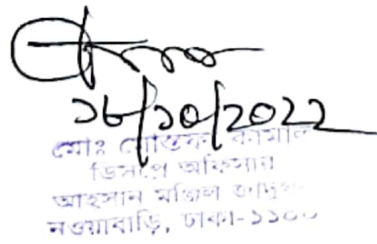 ১৮/১০/২০২২
মোঃ মোস্তফা কামাল
ডিসপ্লে অফিসার
আহসান মঞ্জিল জাদুঘর
নওয়াবাড়ি, ঢাকা-১১০০